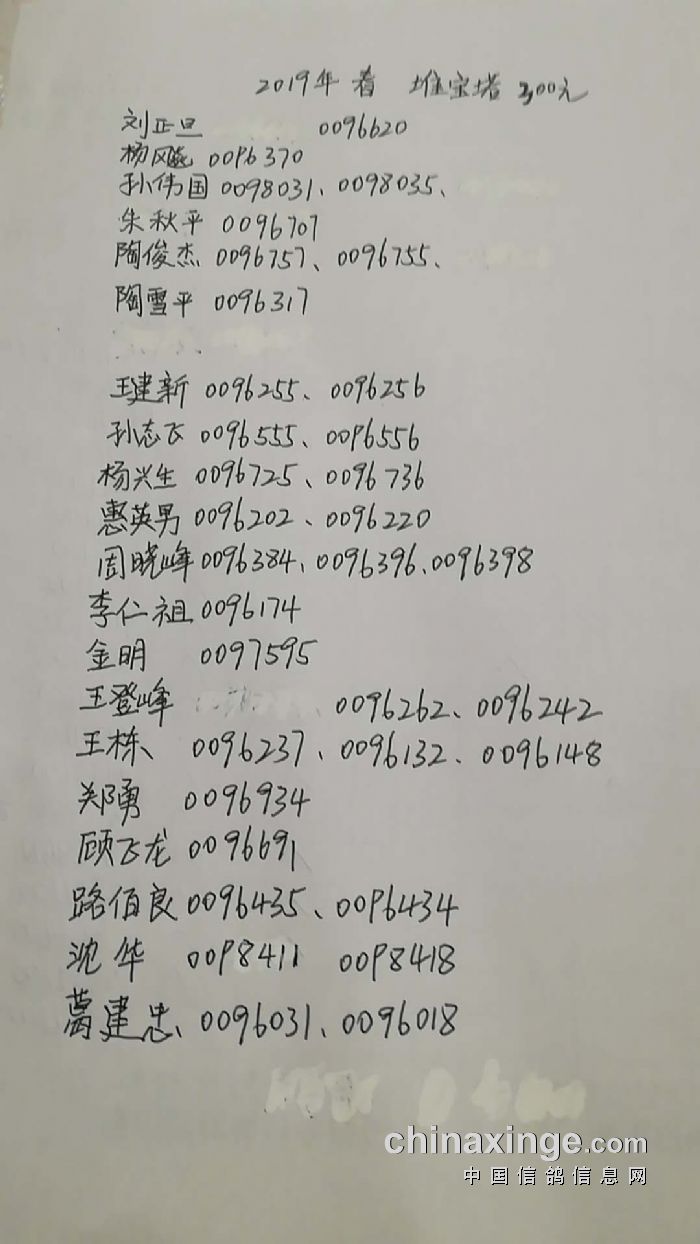 2019年春 堆宝塔 300元
刘正旦 0096620
杨飚 0096370
孙伟国 0098031、0098035、
朱秋平 0096707
陶俊杰 0096757、0096755、
陶雪平 0096317
王建新 0096255、0096256
孙志飞 0096555、0096556
杨兴生 0096725、0096736
惠英男 0096202、0096220
周晓峰 0096384、0096396、0096398
李仁祖 0096174
金明 0097595
王登峰 0096262、0096242
王栋、 0096237、0096132、0096148
郑勇 0096934
顾飞龙 0096691
路佰良 0096435、0096434
沈华 0098411 0098418
葛建忠、0096031、0096018
chinaxinge.com
中国信鸽信息网